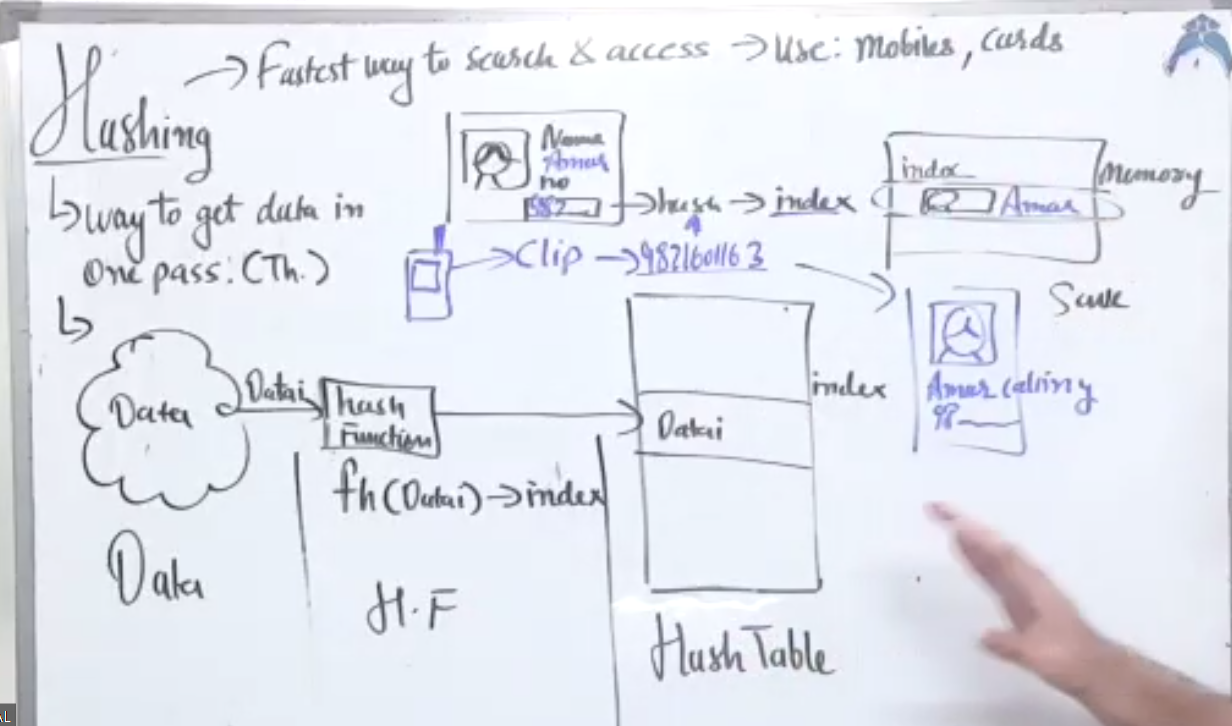 Hashing
→ Fastest way to search & access → Use: Mobiles, Cards
↳ way to get data in
One pass: (Th.)
Name
Amar
no
982
→ hash → index
→ Clip → 9821601163
index
Amar
Memory
Save
Amar calling
98
Data
Datai
hash
Function
Datai
index
fh(Datai) → index
Data
H.F
Hash Table